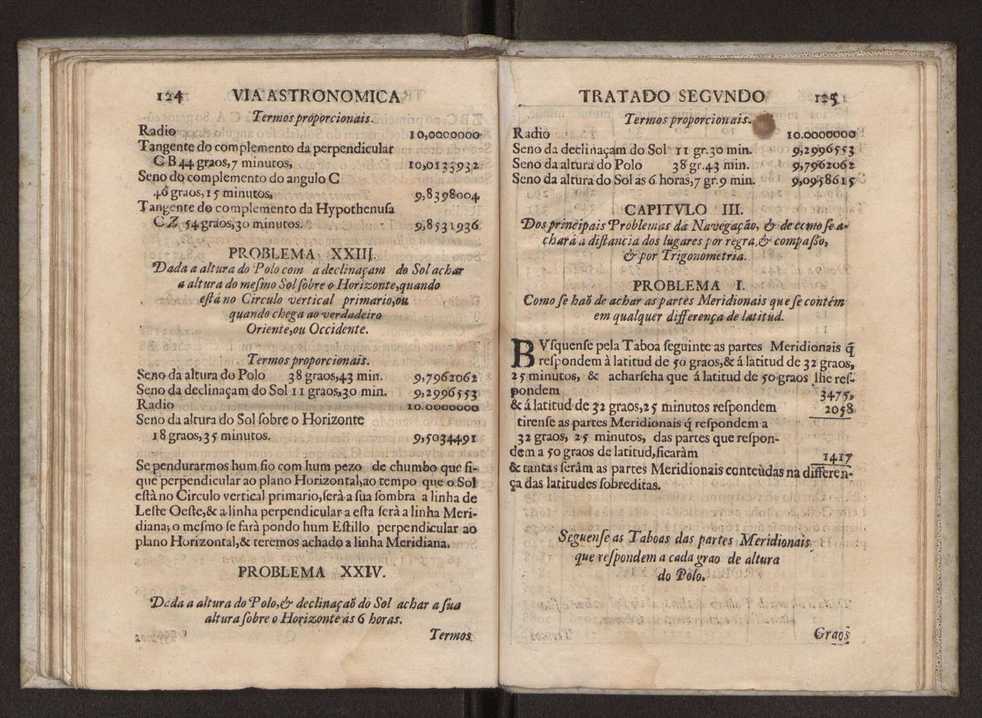 124 VIA ASTRONOMICA
Termos proporcionais.
Radio 10,0000000
Tangente do complemento da perpendicular
C B 44 graos, 7 minutos, 10,0133932
Seno do complemento do angulo C
46 graos, 15 minutos, 9,8398004
Tangente do complemento da Hypothenuſa
C Z 54 graos, 30 minutos. 9,8531936
PROBLEMA XXIII.
Dada a altura do Polo com a declinaçam do Sol achar
a altura do meſmo Sol ſobre o Horizonte, quando
eſtá no Circulo vertical primario, ou
quando chega ao verdadeiro
Oriente, ou Occidente.
Termos proporcionais.
Seno da altura do Polo 38 graos, 43 min. 9,7962062
Seno da declinaçam do Sol 11 graos, 30 min. 9,2996553
Radio 10.0000000
Seno da altura do Sol ſobre o Horizonte
18 graos, 35 minutos. 9,5034491
Se pendurarmos hum fio com hum pezo de chumbo que fi-
que perpendicular ao plano Horizontal, ao tempo que o Sol
eſtà no Circulo vertical primario, ſerà a ſua ſombra a linha de
Leſte Oeſte, & a linha perpendicular a eſta ſerà a linha Meri-
diana; o meſmo ſe farà pondo hum Eſtillo perpendicular ao
plano Horizontal, & teremos achado a linha Meridiana.
PROBLEMA XXIV.
Dada a altura do Polo, & declinaçaõ do Sol achar a ſua
altura ſobre o Horizonte ás 6 horas.
Termos
TRATADO SEGVNDO 125
Termos proporcionais.
Radio 10.0000000
Seno da declinaçam do Sol 11 gr. 30 min. 9,2996553
Seno da altura do Polo 38 gr. 43 min. 9,7962062
Seno da altura do Sol as 6 horas, 7 gr. 9 min. 9,0958615
CAPITVLO III.
Dos principais Problemas da Navegação, & de como ſe a-
chará a diſtancia dos lugares por regra, & compaſſo,
& por Trigonometria.
PROBLEMA I.
Como ſe haõ de achar as partes Meridionais que ſe contém
em qualquer differença de latitud.
BVſquenſe pela Taboa ſeguinte as partes Meridionais q̃
reſpondem à latitud de 50 graos, & á latitud de 32 graos,
25 minutos, & acharſeha que á latitud de 50 graos lhe reſ-
pondem 3475,
& á latitud de 32 graos, 25 minutos reſpondem 2058
tirenſe as partes Meridionais q̃ reſpondem a
32 graos, 25 minutos, das partes que reſpon-
dem a 50 graos de latitud, ficaràm 1417
& tantas ſerâm as partes Meridionais conteùdas na differen-
ça das latitudes ſobreditas.
Seguenſe as Taboas das partes Meridionais
que reſpondem a cada grao de altura
do Polo.
Graos